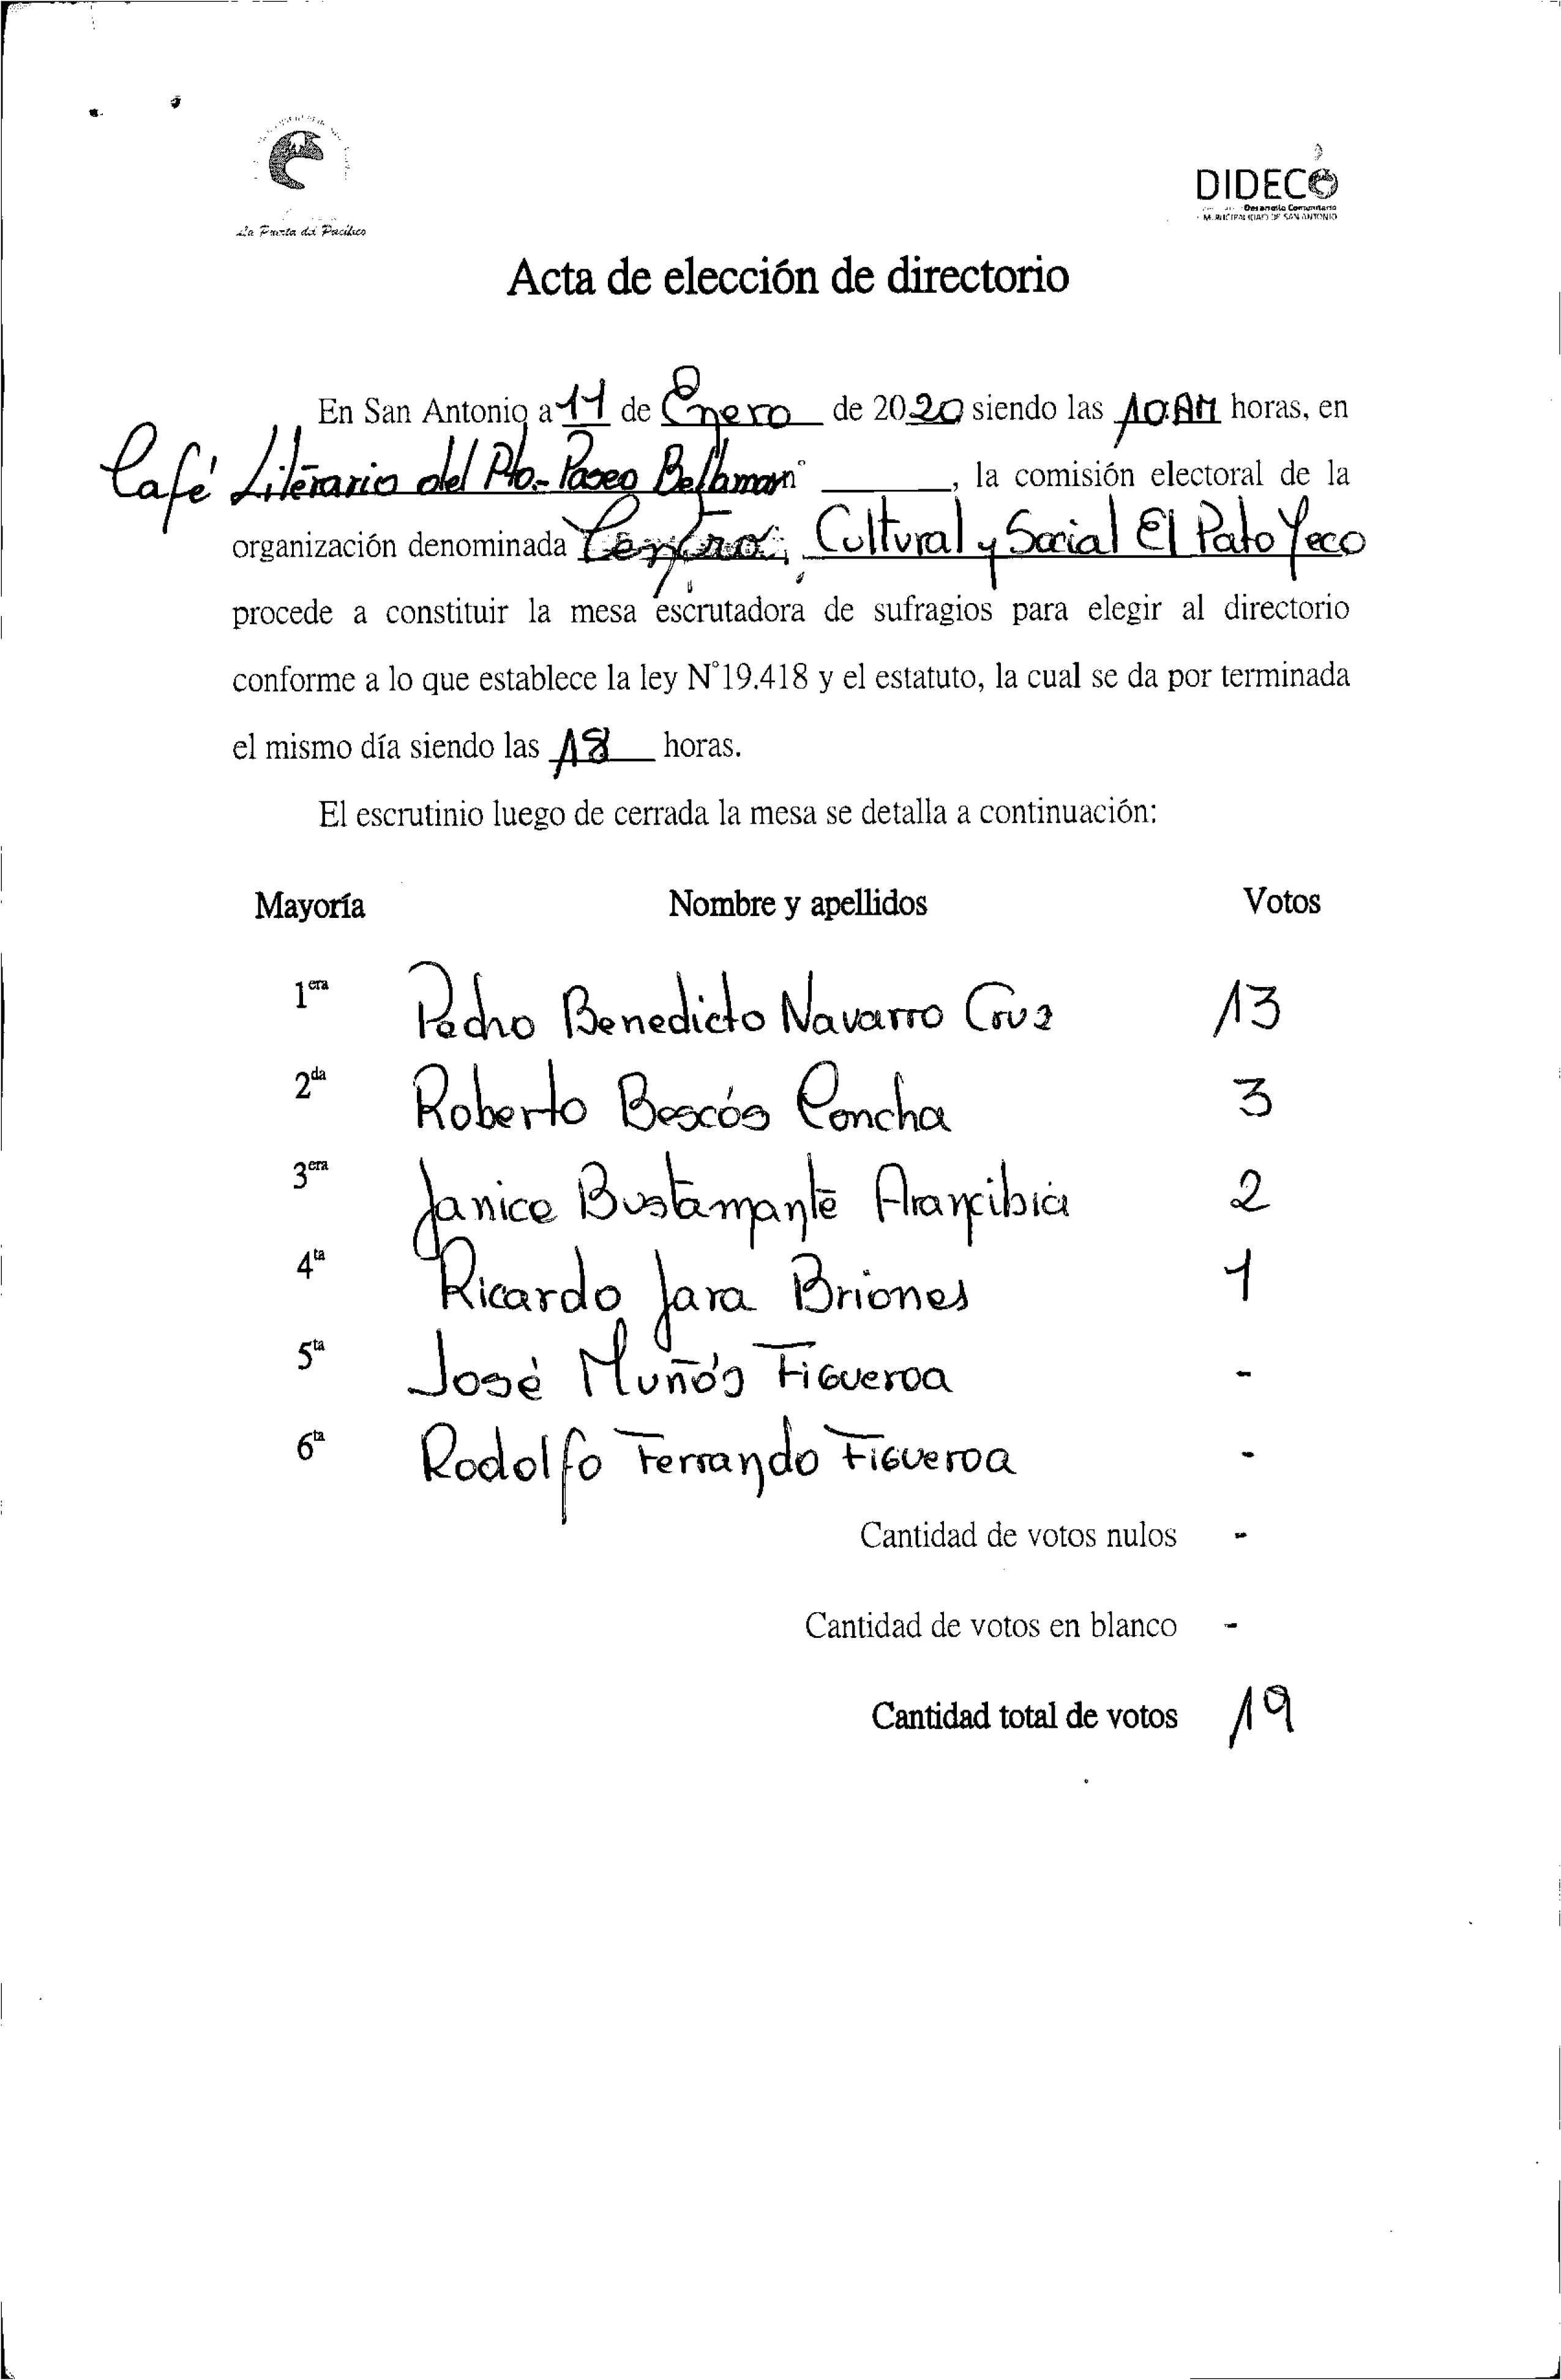 La Puerta del Pacífico
DIDECO
Desarrollo Comunitario
MUNICIPALIDAD DE SAN ANTONIO
Acta de elección de directorio
En San Antonio a 11 de Enero de 2020 siendo las 10:AM horas, en
Café Literario del Pto.- Paseo Bellamar n° ______, la comisión electoral de la
organización denominada Centro Cultural y Social El Pato Yeco
procede a constituir la mesa escrutadora de sufragios para elegir al directorio
conforme a lo que establece la ley N°19.418 y el estatuto, la cual se da por terminada
el mismo día siendo las 18 horas.
El escrutinio luego de cerrada la mesa se detalla a continuación:
Mayoría Nombre y apellidos Votos
1era Pedro Benedicto Navarro Cruz 13
2da Roberto Boscós Concha 3
3era Janice Bustamante Arancibia 2
4ta Ricardo Jara Briones 1
5ta José Muñóz Figueroa -
6ta Rodolfo Ferrando Figueroa -
Cantidad de votos nulos -
Cantidad de votos en blanco -
Cantidad total de votos 19